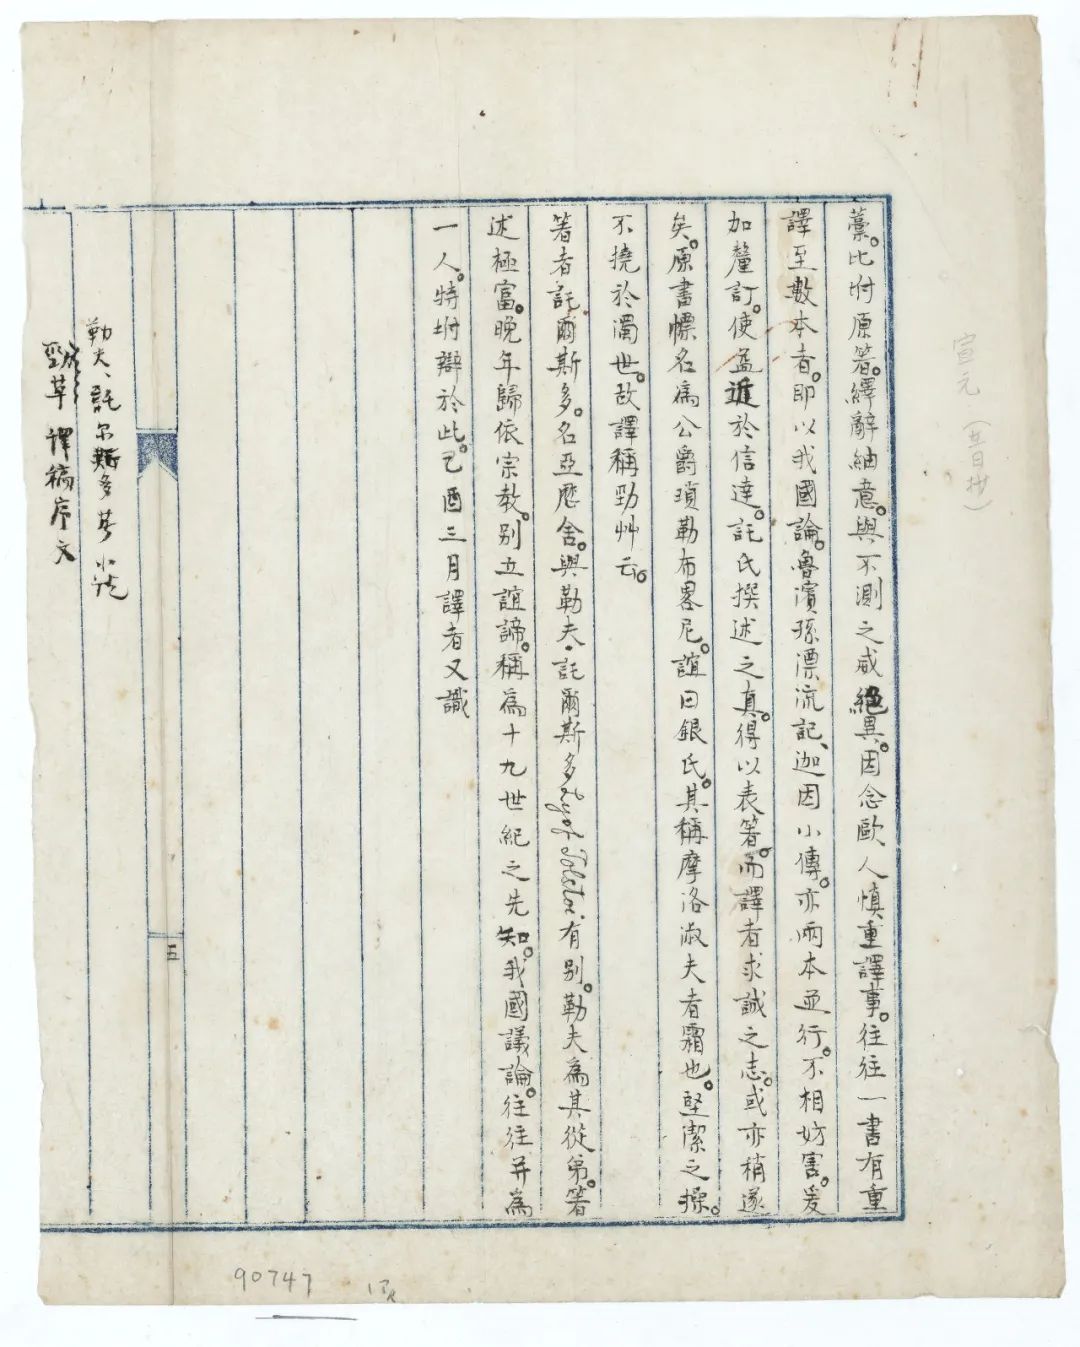 藳。比坿原箸。繹辭紬意。與不測之威絕異。因念歐人慎重譯事。往往一書有重
譯至數本者。即以我國論。魯濱孫漂流記、迦因小傳。亦兩本並行。不相妨害。爰
加釐訂。使益近於信達。託氏撰述之真。得以表箸。而譯者求誠之志。或亦稍遂
矣。原書幖名為公爵瑣勒布畧尼。誼曰銀氏。其稱摩洛淑夫者霜也。堅潔之操。
不撓於濁世。故譯稱勁艸云。
箸者託爾斯多。名亞歷舍。與勒夫·託爾斯多Lyof Tolstoi有別。勒夫為其從弟。箸
述極富。晚年歸依宗教。別立誼諦。稱為十九世紀之先知。我國議論。往往并為
一人。特坿辯於此。己酉三月譯者又識
五
勒夫、託尔斯多
勁草譯稿序文
宣元
90747